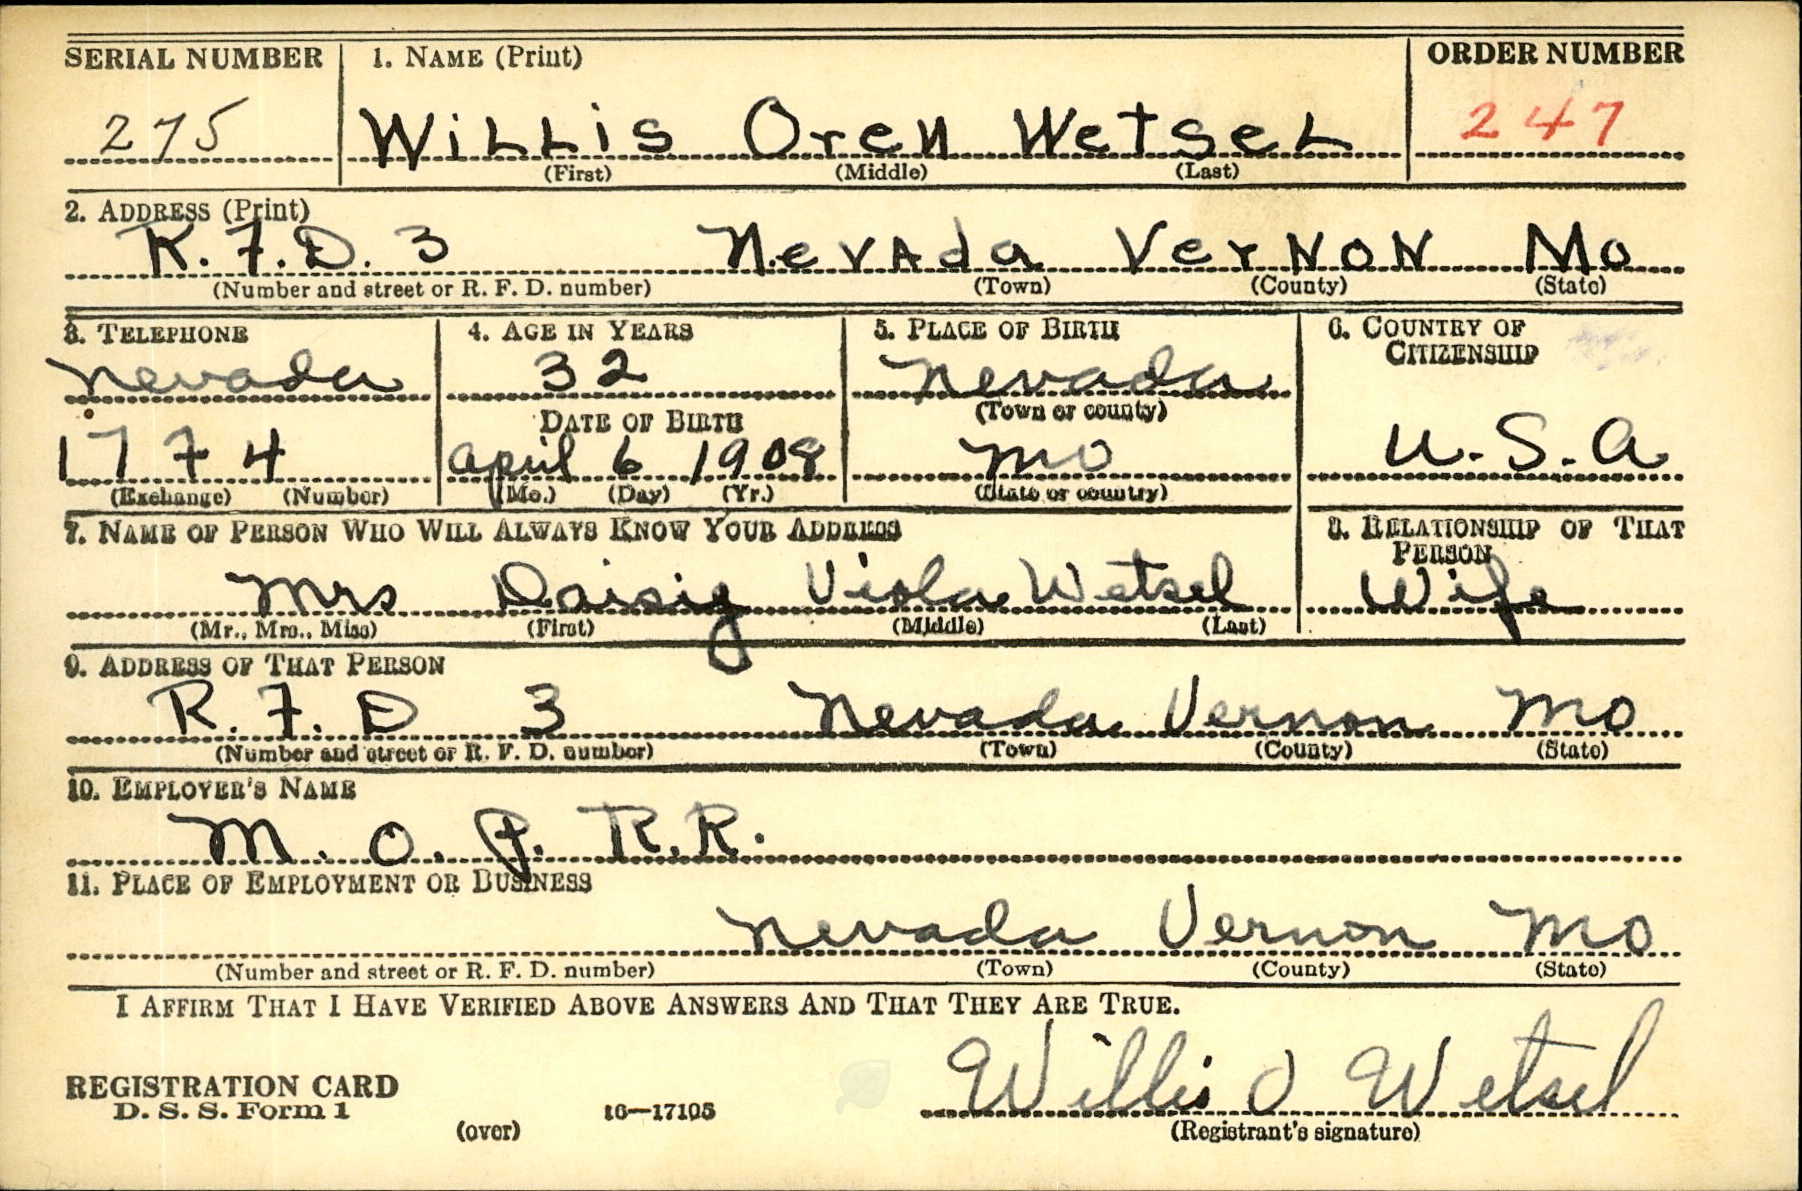 SERIAL NUMBER 1. NAME (Print) ORDER NUMBER
275 WiLLiS Oren WetseL 247
(First) (Middle) (Last)
2. ADDRESS (Print)
R.F.D. 3 Nevada Vernon Mo
(Number and street or R. F. D. number) (Town) (County) (State)
3. TELEPHONE 4. AGE IN YEARS 5. PLACE OF BIRTH 6. COUNTRY OF
CITIZENSHIP
Nevada 32 Nevada
DATE OF BIRTH (Town or county)
1774 April 6 1908 Mo U.S.A
(Exchange) (Number) (Mo.) (Day) (Yr.) (State or country)
7. NAME OF PERSON WHO WILL ALWAYS KNOW YOUR ADDRESS 8. RELATIONSHIP OF THAT
PERSON
Mrs Daisy Viola Wetsel Wife
(Mr., Mrs., Miss) (First) (Middle) (Last)
9. ADDRESS OF THAT PERSON
R.F.D 3 Nevada Vernon Mo
(Number and street or R. F. D. number) (Town) (County) (State)
10. EMPLOYER'S NAME
M.O.P. R.R.
11. PLACE OF EMPLOYMENT OR BUSINESS
Nevada Vernon Mo
(Number and street or R. F. D. number) (Town) (County) (State)
I AFFIRM THAT I HAVE VERIFIED ABOVE ANSWERS AND THAT THEY ARE TRUE.
Willis O Wetsel
REGISTRATION CARD
D. S. S. Form 1 16—17105
(over) (Registrant's signature)